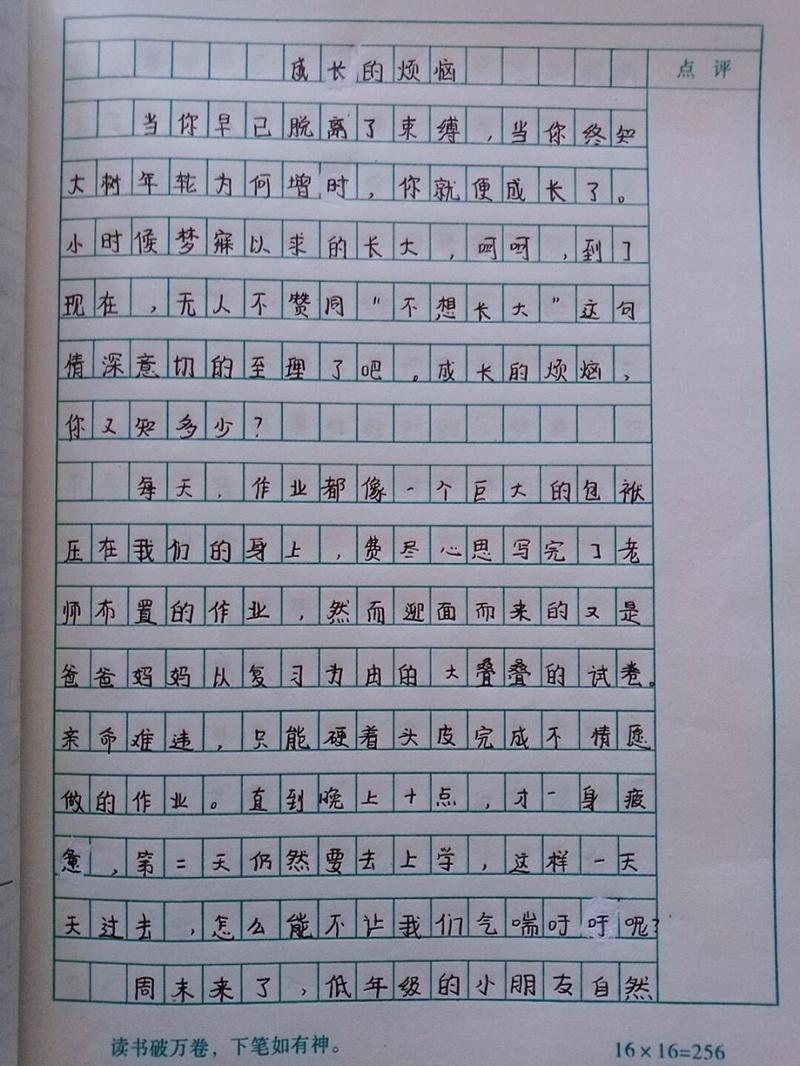 成长的烦恼
点评
当你早已脱离了束缚，当你终知
大树年轮为何增时，你就便成长了。
小时候梦寐以求的长大，呵呵，到了
现在，无人不赞同“不想长大”这句
情深意切的至理了吧。成长的烦恼，
你又知多少？
每天，作业都像一个巨大的包袱
压在我们的身上，费尽心思写完了老
师布置的作业，然而迎面而来的又是
爸爸妈妈以复习为由的大叠叠的试卷。
亲命难违，只能硬着头皮完成不情愿
做的作业。直到晚上十点，才一身疲
惫，第二天仍然要去上学，这样一天
天过去，怎么能不让我们气喘吁吁呢？
周末来了，低年级的小朋友自然
读书破万卷，下笔如有神。
16×16=256